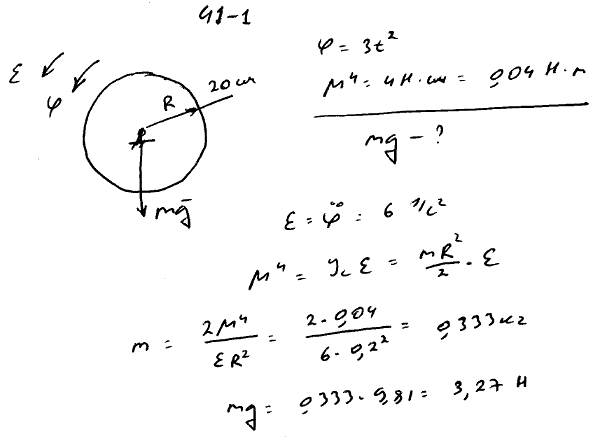 41-1
ε
φ
R
20 см
mg̅
φ = 3t²
Mᴵᴵ = 4 Н·см = 0,04 Н·м
mg - ?
ε = φ̈ = 6 1/с²
Mᴵᴵ = Jc ε = mR²/2 · ε
m = 2Mᴵᴵ/εR² = 2·0,04/6·0,2² = 0,333 кг
mg = 0,333·9,81 = 3,27 Н